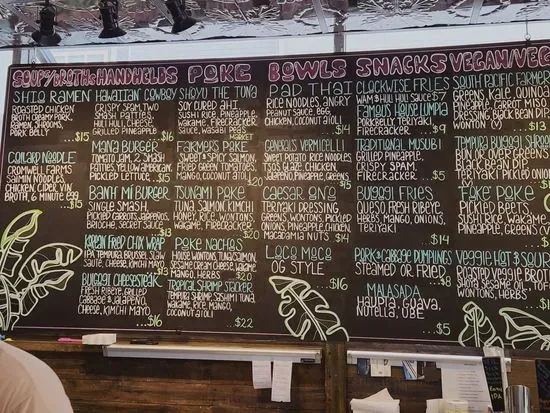 SOUPS/BROTHS
SHIO RAMEN
ROASTED CHICKEN
BROTH, CREAMY PORK,
KEMP. SHROOMS,
PORK BELLY
...$15
COLLARD NOODLE
CROMWELL FARMS
SAIMIN NOODLES,
CHICKEN, CIDER VIN,
BROTH, 6 MINUTE EGG
...$15
HANDHELDS
HAWAIIAN COWBOY
CRISPY SPAM, TWO
SMASH PATTIES,
HULI HULI, CHEESE,
GRILLED PINEAPPLE
$16
MANA BURGER
TOMATO JAM, 2 SMASH
PATTIES, YELLOW AMERICAN,
PICKLED LETTUCE
...$15
BANH MI BURGER
SINGLE SMASH,
PICKLED CARROTS, JALAPENOS,
BRIOCHE, SECRET SAUCE
...$13
KOREAN FRIED CHIX WRAP
IPA TEMPURA BREAST, SLAW
SEC. CHEESE, KIMCHI MAYO
$13
BUGOGI CHEESESTEAK
FRESH RIBEYE, GRILLED
CABBAGE & JALAPENO,
CHEESE, KIMCHI MAYO
...$16
POKE
SHOYU THE TUNA
SOY CURED AHI,
SUSHI RICE, PINEAPPLE
WAKAME, FIRECRACKER
SAUCE, WASABI
MARKET
FARMERS POKE
SWEET & SPICY SALMON,
FRIED GREEN TOMATOES
MANGO, COCONUT AIOLI
$20
TSUNAMI POKE
TUNA, SALMON, KIMCHI,
HONEY, RICE, WONTONS,
WAKAME, FIRECRACKER
$20
POKE NACHOS
HOUSE WONTONS, TUNA/SALMON
SESAME CREAM CHEESE, WAKAME
MANGO, HEAT
$20
TROPICAL SHRIMP STACKER
TEMPURA SHRIMP, SASHIMI TUNA,
WAKAME, RICE, MANGO,
COCONUT AIOLI
...$22
BOWLS
PAD THAI
RICE NOODLES, ANGRY
PEANUT SAUCE, EGG,
CHICKEN, COCONUT AIOLI
$14
GENERALS VERMICELLI
SWEET POTATO RICE NOODLES,
TSO'S GLAZE, CHICKEN
JAPANESE GREENS
$15
CAESAR ONO
TERIYAKI PRESSING,
GREENS, WONTONS, PICKLED
ONIONS, PINEAPPLE,
CHICKEN, TOMATO,
MACADAMIA NUTS
$14
LOCO MOCO
OG STYLE
...$16
SNACKS
CLOCKWISE FRIES
WAM & HULI HULI SAUCES 7
FAMOUS HOUSE LUMPIA
BEEF CURRY, TERIYAKI,
FIRECRACKER
...$9
TRADITIONAL MUSUBI
GRILLED PINEAPPLE,
CRISPY SPAM,
FIRECRACKER
...$5
BUGOGI FRIES
QUESO, FRESH RIBEYE,
HERBS, MANGO, ONIONS,
TERIYAKI
...$14
PORK & CABBAGE DUMPLINGS
STEAMED OR FRIED
...$8
MALASADA
HAUPIA, GUAVA,
NUTELLA, UBE
...$5
VEGAN/VEG
SOUTH PACIFIC FARMERS
GREENS, KALE, QUINOA
PINEAPPLE, CARROT MISO
DRESSING, BLACK BEAN DIP
WONTON (V)
$13
TEMPURA BUGGI SHROOM
BUN OR OVER GREENS
BLACK BEAN DIP,
SWEET POTATO,
GREENS, PINEAPPLE
FAKE POKE
PICKLED BEETS,
SUSHI RICE, WAKAME
PINEAPPLE, GREENS
WONTONS
VEGGIE HOT & SOUR
ROASTED VEGGIE BROTH
SHOYU, SESAME OIL, TOFU
WONTONS, HERBS
...$16